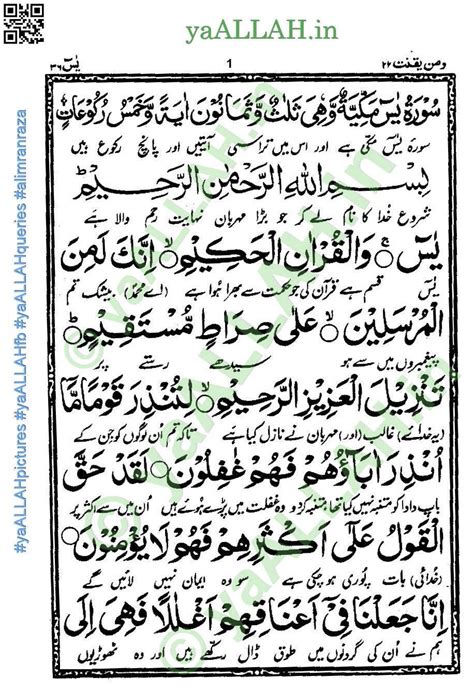 yaALLAH.in
ومن یقنت ۲۲
1
یٰسٓ ۳۶
سُوْرَةُ يٰسٓ مَكِّيَّةٌ وَّهِيَ ثَلٰثٌ وَّثَمَانُوْنَ اٰيَةً وَّخَمْسُ رُكُوْعَاتٍ
سورۂ یٰسٓ مکی ہے اور اس میں تراسی آیتیں اور پانچ رکوع ہیں
بِسْمِ اللهِ الرَّحْمٰنِ الرَّحِيْمِ
شروع خدا کا نام لے کر جو بڑا مہربان نہایت رحم والا ہے
يٰسٓ ۚ وَالْقُرْاٰنِ الْحَكِيْمِ ۙ اِنَّكَ لَمِنَ
یٰسٓ قسم ہے قرآن کی جو حکمت سے بھرا ہوا ہے (اے محمدؐ) بیشک تم
الْمُرْسَلِيْنَ ۙ عَلٰى صِرَاطٍ مُّسْتَقِيْمٍ ؕ
پیغمبروں میں سے ہو سیدھے رستے پر
تَنْزِيْلَ الْعَزِيْزِ الرَّحِيْمِ ۙ لِتُنْذِرَ قَوْمًا مَّا
(یہ خدائے) غالب (اور) مہربان نے نازل کیا ہے تاکہ تم ان لوگوں کو جن کے
اُنْذِرَ اٰبَآؤُهُمْ فَهُمْ غٰفِلُوْنَ لَقَدْ حَقَّ
باپ دادا کو متنبہ نہیں کیا گیا تھا متنبہ کر دو وہ غفلت میں پڑے ہوئے ہیں ان میں سے اکثر پر
الْقَوْلُ عَلٰٓى اَكْثَرِهِمْ فَهُمْ لَا يُؤْمِنُوْنَ
(خدا کی) بات پوری ہو چکی ہے سو وہ ایمان نہیں لائیں گے
اِنَّا جَعَلْنَا فِيْٓ اَعْنَاقِهِمْ اَغْلٰلًا فَهِيَ اِلَى
ہم نے ان کی گردنوں میں طوق ڈال رکھے ہیں اور وہ ٹھوڑیوں
#yaALLAHpictures #yaALLAHfb #yaALLAHqueries #alimranraza
© yaALLAH.in
© yaALLAH.in
© yaALLAH.in